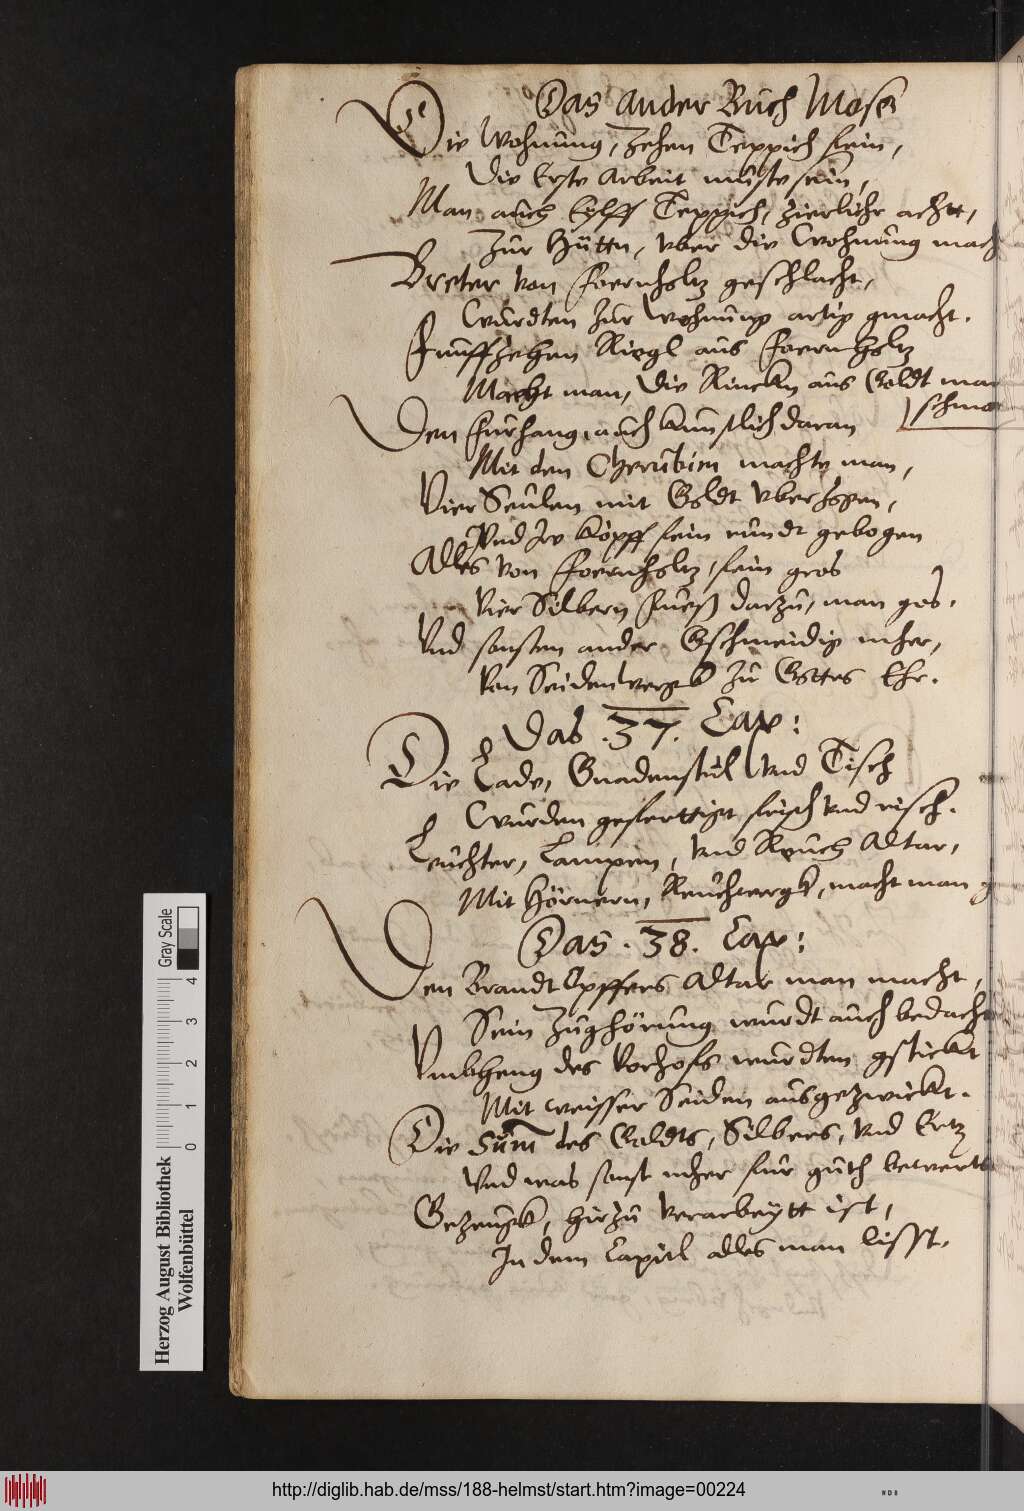 Das ander Buch Mose
Die Wohnung, Zehen Teppich fein,
Die Erste Arbeit muste sein,
Man auch Eylff Teppich, zierlicher achtt,
Zur Hüttn, vber die Wohnung mach
Breter von Foernholtz geschlacht,
Wurdten zur Wohnung artig gmacht.
Funffzehen Riegl aus Foernholtz
Macht man, die Rincken aus Goldt man
schmo
Den Furhang, auch kunstlich daran
Mit den Cherubim machte man,
Vier Seulen mit Goldt vberzogen,
Vnd Jre Köpff fein rundt gebogen
Alles von Foernholtz, fein gros
Vier Silbern Fueß darzu, man gos.
Vnd sonsten ander Gschmeidig mher,
Von Seidenwergk zu Gottes Ehr.
Das .37. Cap:
Die Lade, Gnadenstul Vnd Tisch
Wurden gefertigt frisch vnd risch.
Leuchter, Lampen, vnd Reuch Altar,
Mit Hörnern, Reuchwergk, macht man
Das .38. Cap:
Den Brandt Opffers Altar man macht,
Sein Zughörung wurdt auch bedacht
Vmbheng des Vorhofs wurdten gstickt
Mit weisser Seiden ausgezwickt.
Die Sum des Goldts, Silbers, vnd Ertz
Vnd was sonst mher fur guth bewert
Gezeugk, hirzu verarbeytt ist,
In dem Capitl alles man lisst.
Herzog August Bibliothek
Wolfenbüttel
Gray Scale
0 1 2 3 4
http://diglib.hab.de/mss/188-helmst/start.htm?image=00224